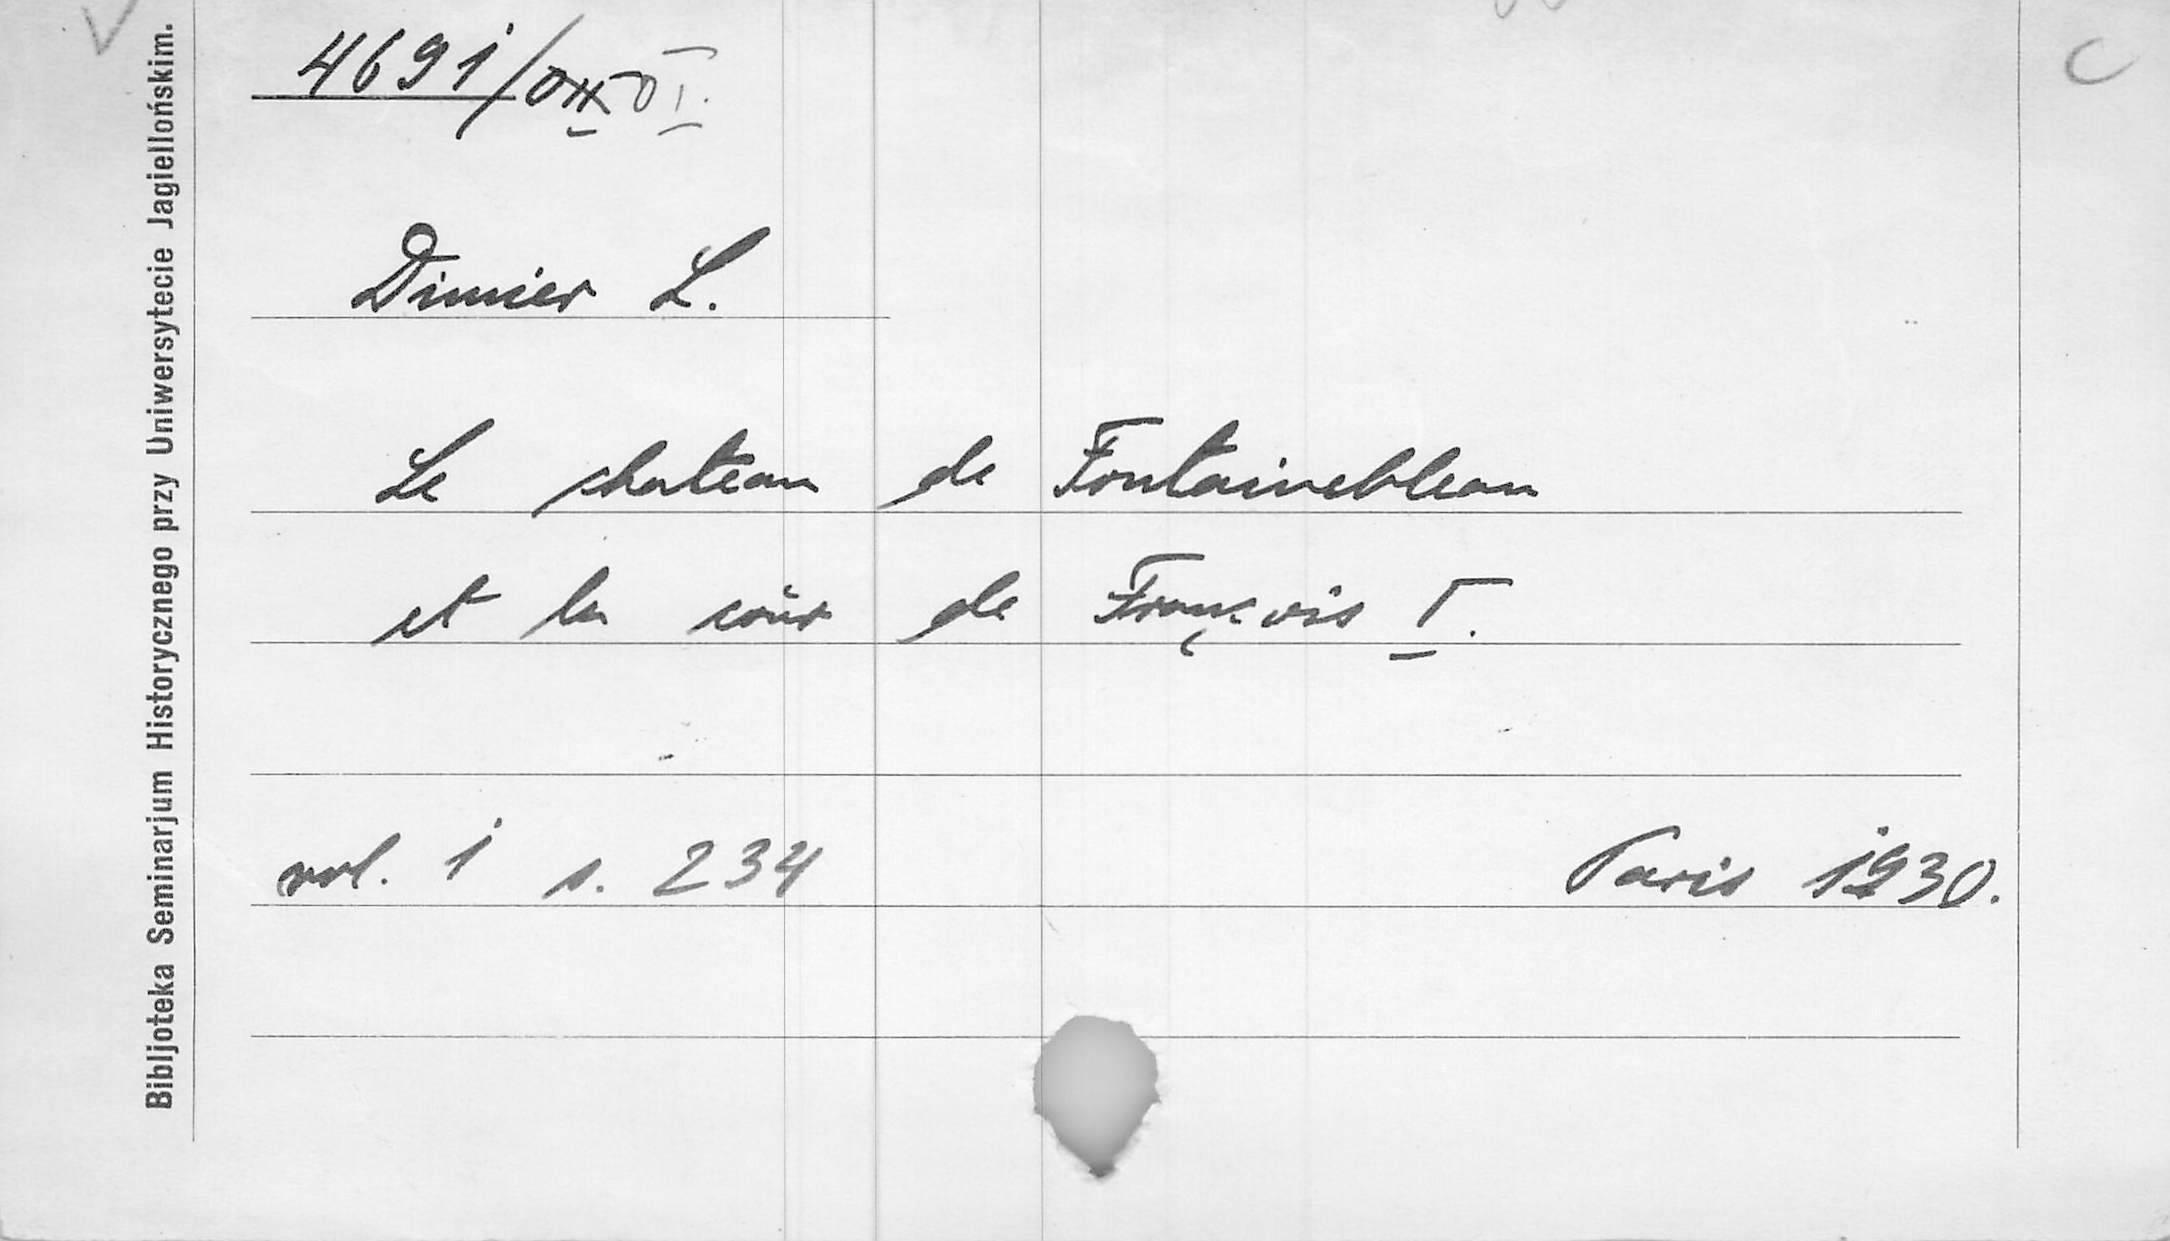 4691/
Dimier L.
Le chateau de Fontainebleau
et la coŭr de François I.
vol. 1 s. 234 Paris 1930.
Bibljoteka Seminarjum Historycznego przy Uniwersytecie Jagiellońskim.
C